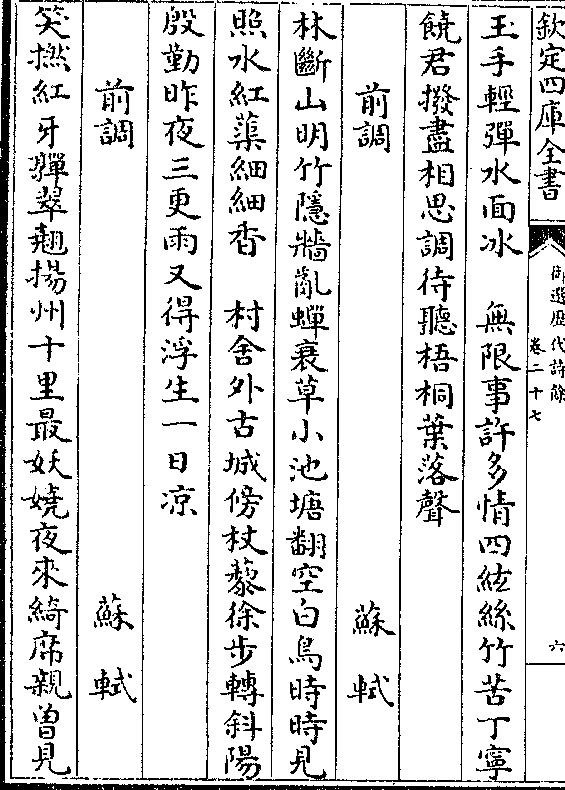 欽定四庫全書
御選歷代詩餘
卷二十七
六
玉手輕彈水面冰　無限事許多情四絃絲竹苦丁寧
饒君撥盡相思調待聽梧桐葉落聲
前調　蘇軾
林斷山明竹隱牆亂蟬衰草小池塘翻空白鳥時時見
照水紅蕖細細香　村舍外古城傍杖藜徐步轉斜陽
殷勤昨夜三更雨又得浮生一日涼
前調　蘇軾
笑撚紅牙嚲翠翹揚州十里最妖嬈夜來綺席親曾見